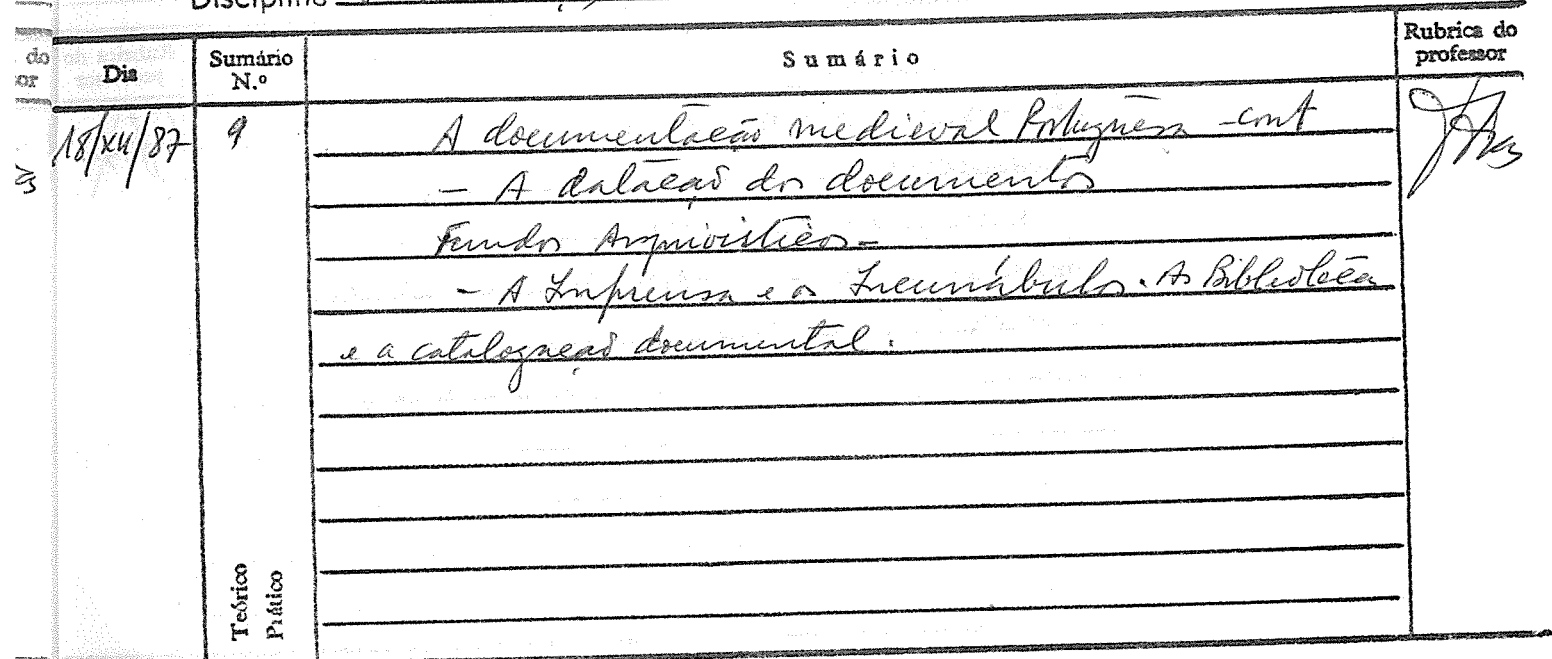 Disciplina
do
Dia
Sumário
N.º
Sumário
Rubrica do
professor
or
18/XII/87
9
A documentação medieval Portuguesa - cont
- A datação dos documentos
Fundos Arquivísticos -
- A Imprensa e os Incunábulos. As Bibliotecas
e a catalogação documental.
Teórico
Prático